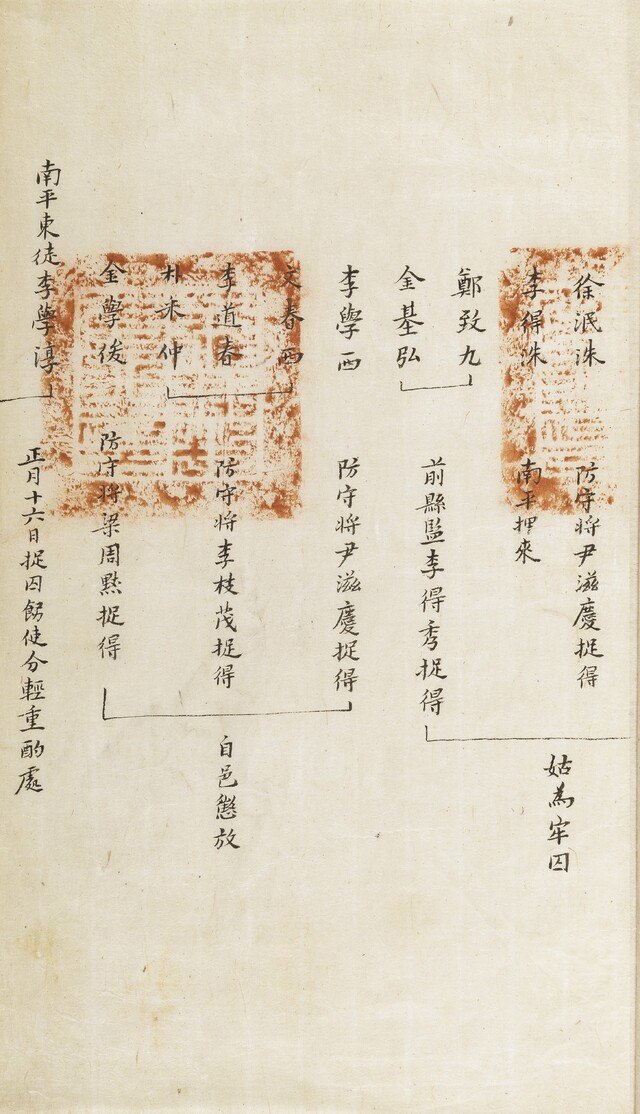 徐泯洙 防守将尹滋慶捉得
李得洙 南平押來
鄭致九
金基弘
前縣監李得秀捉得
姑為牢囚
李學西 防守将尹滋慶捉得
文春西
李道春 防守将李枝茂捉得
朴米仲
金學俊 防守将梁周㸃捉得
自邑懲放
南平東徒李學淳
正月十六日捉囚飭使分輕重酌處